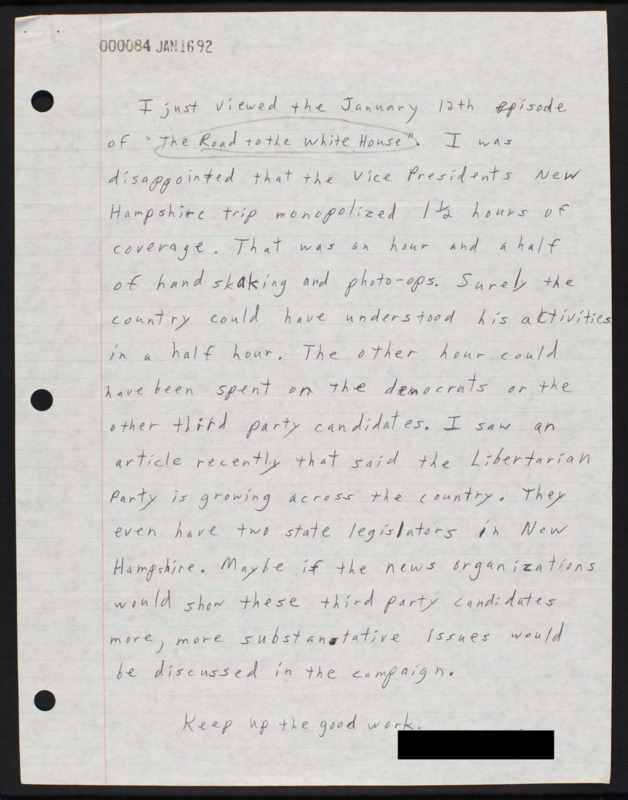 000084 JAN 16 92
I just viewed the January 12th episode
of "The Road to the White House". I was
disappointed that the Vice Presidents New
Hampshire trip monopolized 1½ hours of
coverage. That was an hour and a half
of hand skaking and photo-ops. Surely the
country could have understood his activities
in a half hour. The other hour could
have been spent on the democrats or the
other third party candidates. I saw an
article recently that said the Libertarian
Party is growing across the country. They
even have two state legislators in New
Hampshire. Maybe if the news organizations
would show these third party candidates
more, more substantative issues would
be discussed in the campaign.
Keep up the good work.